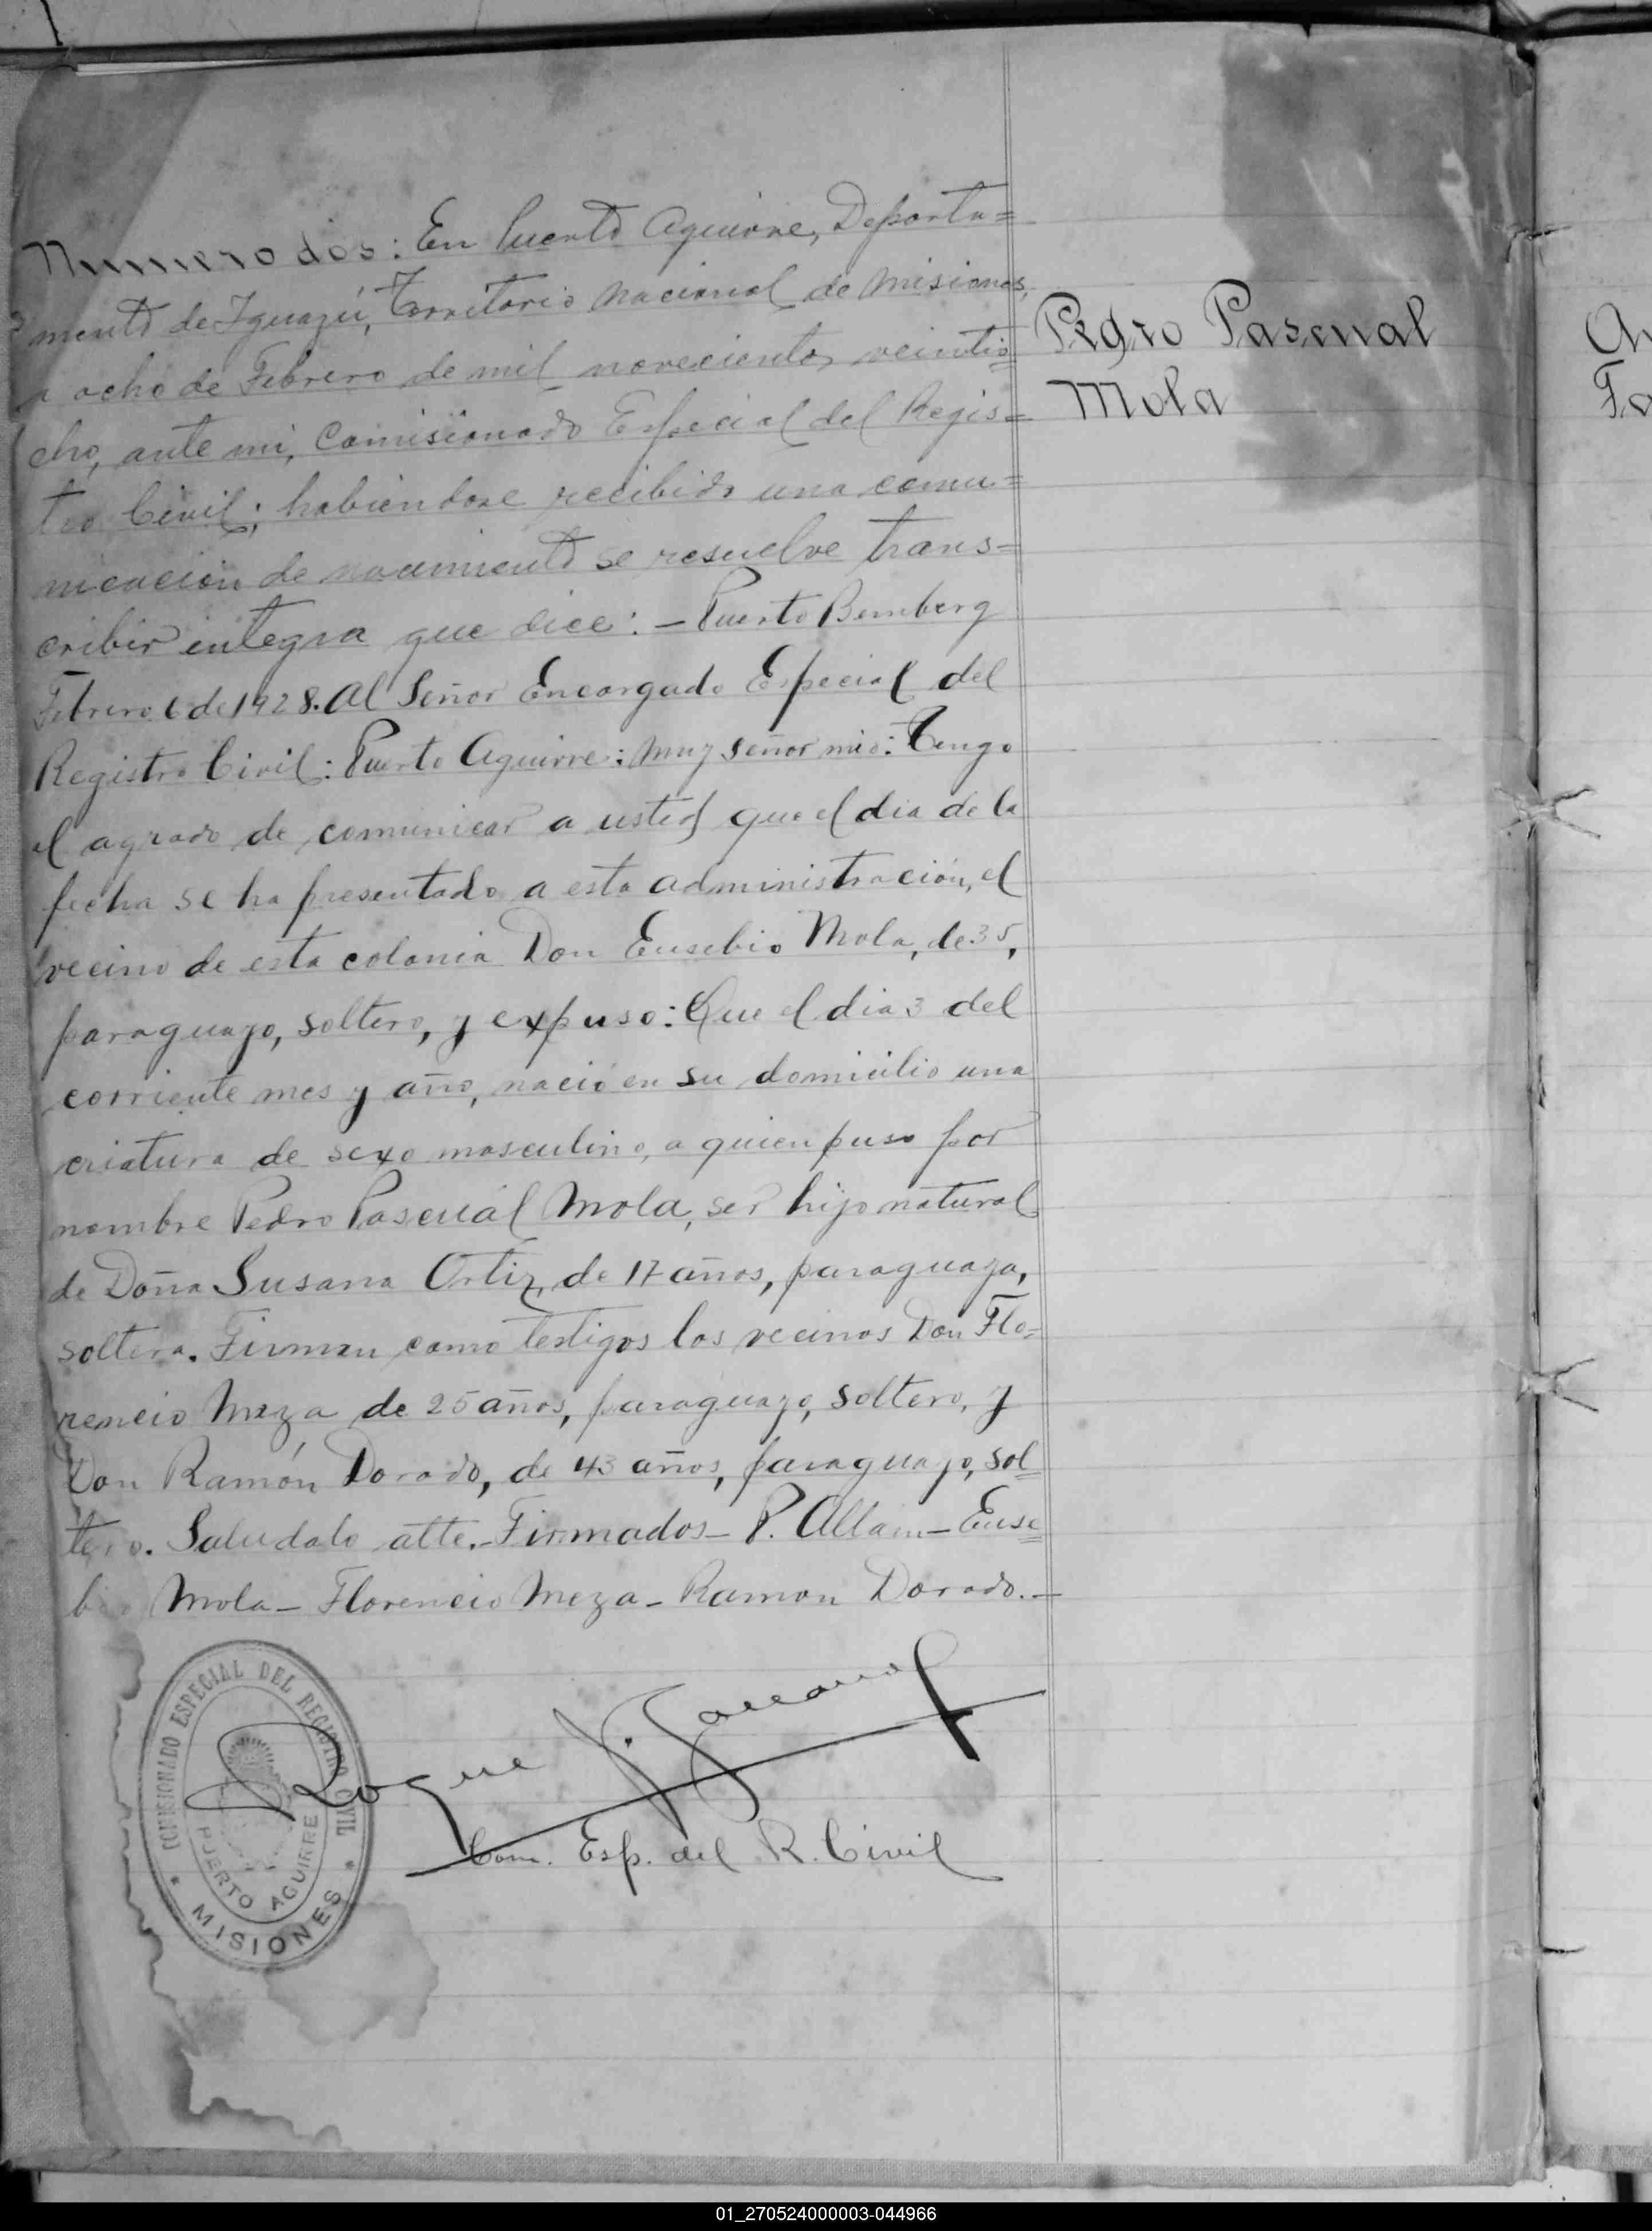 Numero dos: En Puerto Aguirre, Departa=
mento de Iguazú, Territorio Nacional de Misiones,
a ocho de Febrero de mil novecientos veintio=
cho, ante mi, Comisionado Especial del Regis=
tro Civil; habiendose recibido una comu=
nicacion de nacimiento se resuelve trans=
cribir integra que dice: - Puerto Bemberg
Febrero 6 de 1928. Al Señor Encargado Especial del
Registro Civil: Puerto Aguirre: Muy señor mio: Tengo
el agrado de comunicar a usted que el dia de la
fecha se ha presentado a esta administración, el
vecino de esta colonia Don Eusebio Mola, de 35,
paraguayo, soltero, y expuso: Que el dia 3 del
corriente mes y año, nació en su domicilio una
criatura de sexo masculino, a quien puso por
nombre Pedro Pascual Mola, ser hijo natural
de Doña Susana Ortiz, de 17 años, paraguaya,
soltera. Firman como testigos los vecinos Don Flo=
rencio Meza de 25 años, paraguayo, soltero, y
Don Ramón Dorado, de 43 años, paraguayo, sol=
tero. Saludalo atte.- Firmados - P. Allain - Euse=
bio Mola - Florencio Meza - Ramon Dorado. -
Pedro Pascual
Mola
Roque J.
Com. Esp. del R. Civil
COMISIONADO ESPECIAL DEL REGISTRO CIVIL
PUERTO AGUIRRE
* MISIONES *
01_270524000003-044966